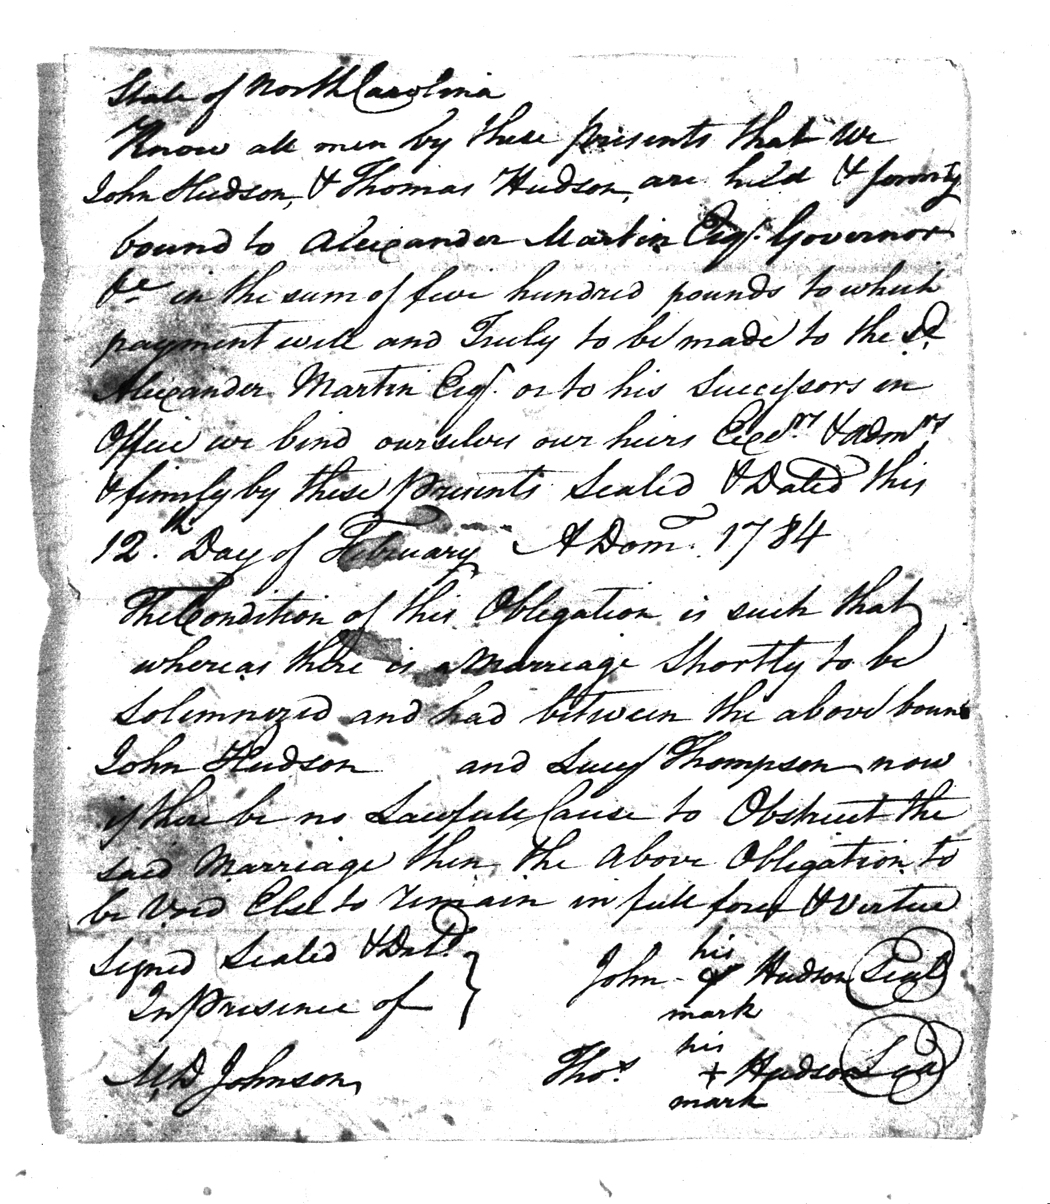 State of North Carolina
Know all men by these presents that We
John Hudson, & Thomas Hudson, are held & firmly
bound to Alexander Martin Esqr. Governor
&c in the sum of five hundred pounds to which
payment well and Truly to be made to the Sd.
Alexander Martin Esqr. or to his Successors in
Office we bind ourselves our heirs Exers. & Admrs
& firmly by these presents Sealed & Dated this
12th. Day of February A Dom. 1784
The Condition of this Obligation is such that
whereas there is a Marriage Shortly to be
Solemnized and had between the above boun
John Hudson and Lucy Thompson now
if there be no Lawfull Cause to Obstruct the
said Marriage then the Above Obligation to
be Void Else to remain in full force & Virtue
Signed Sealed &
In presence of
John his Hudson Seal
mark
M,D Johnson
Thos his + Hudson Seal
mark